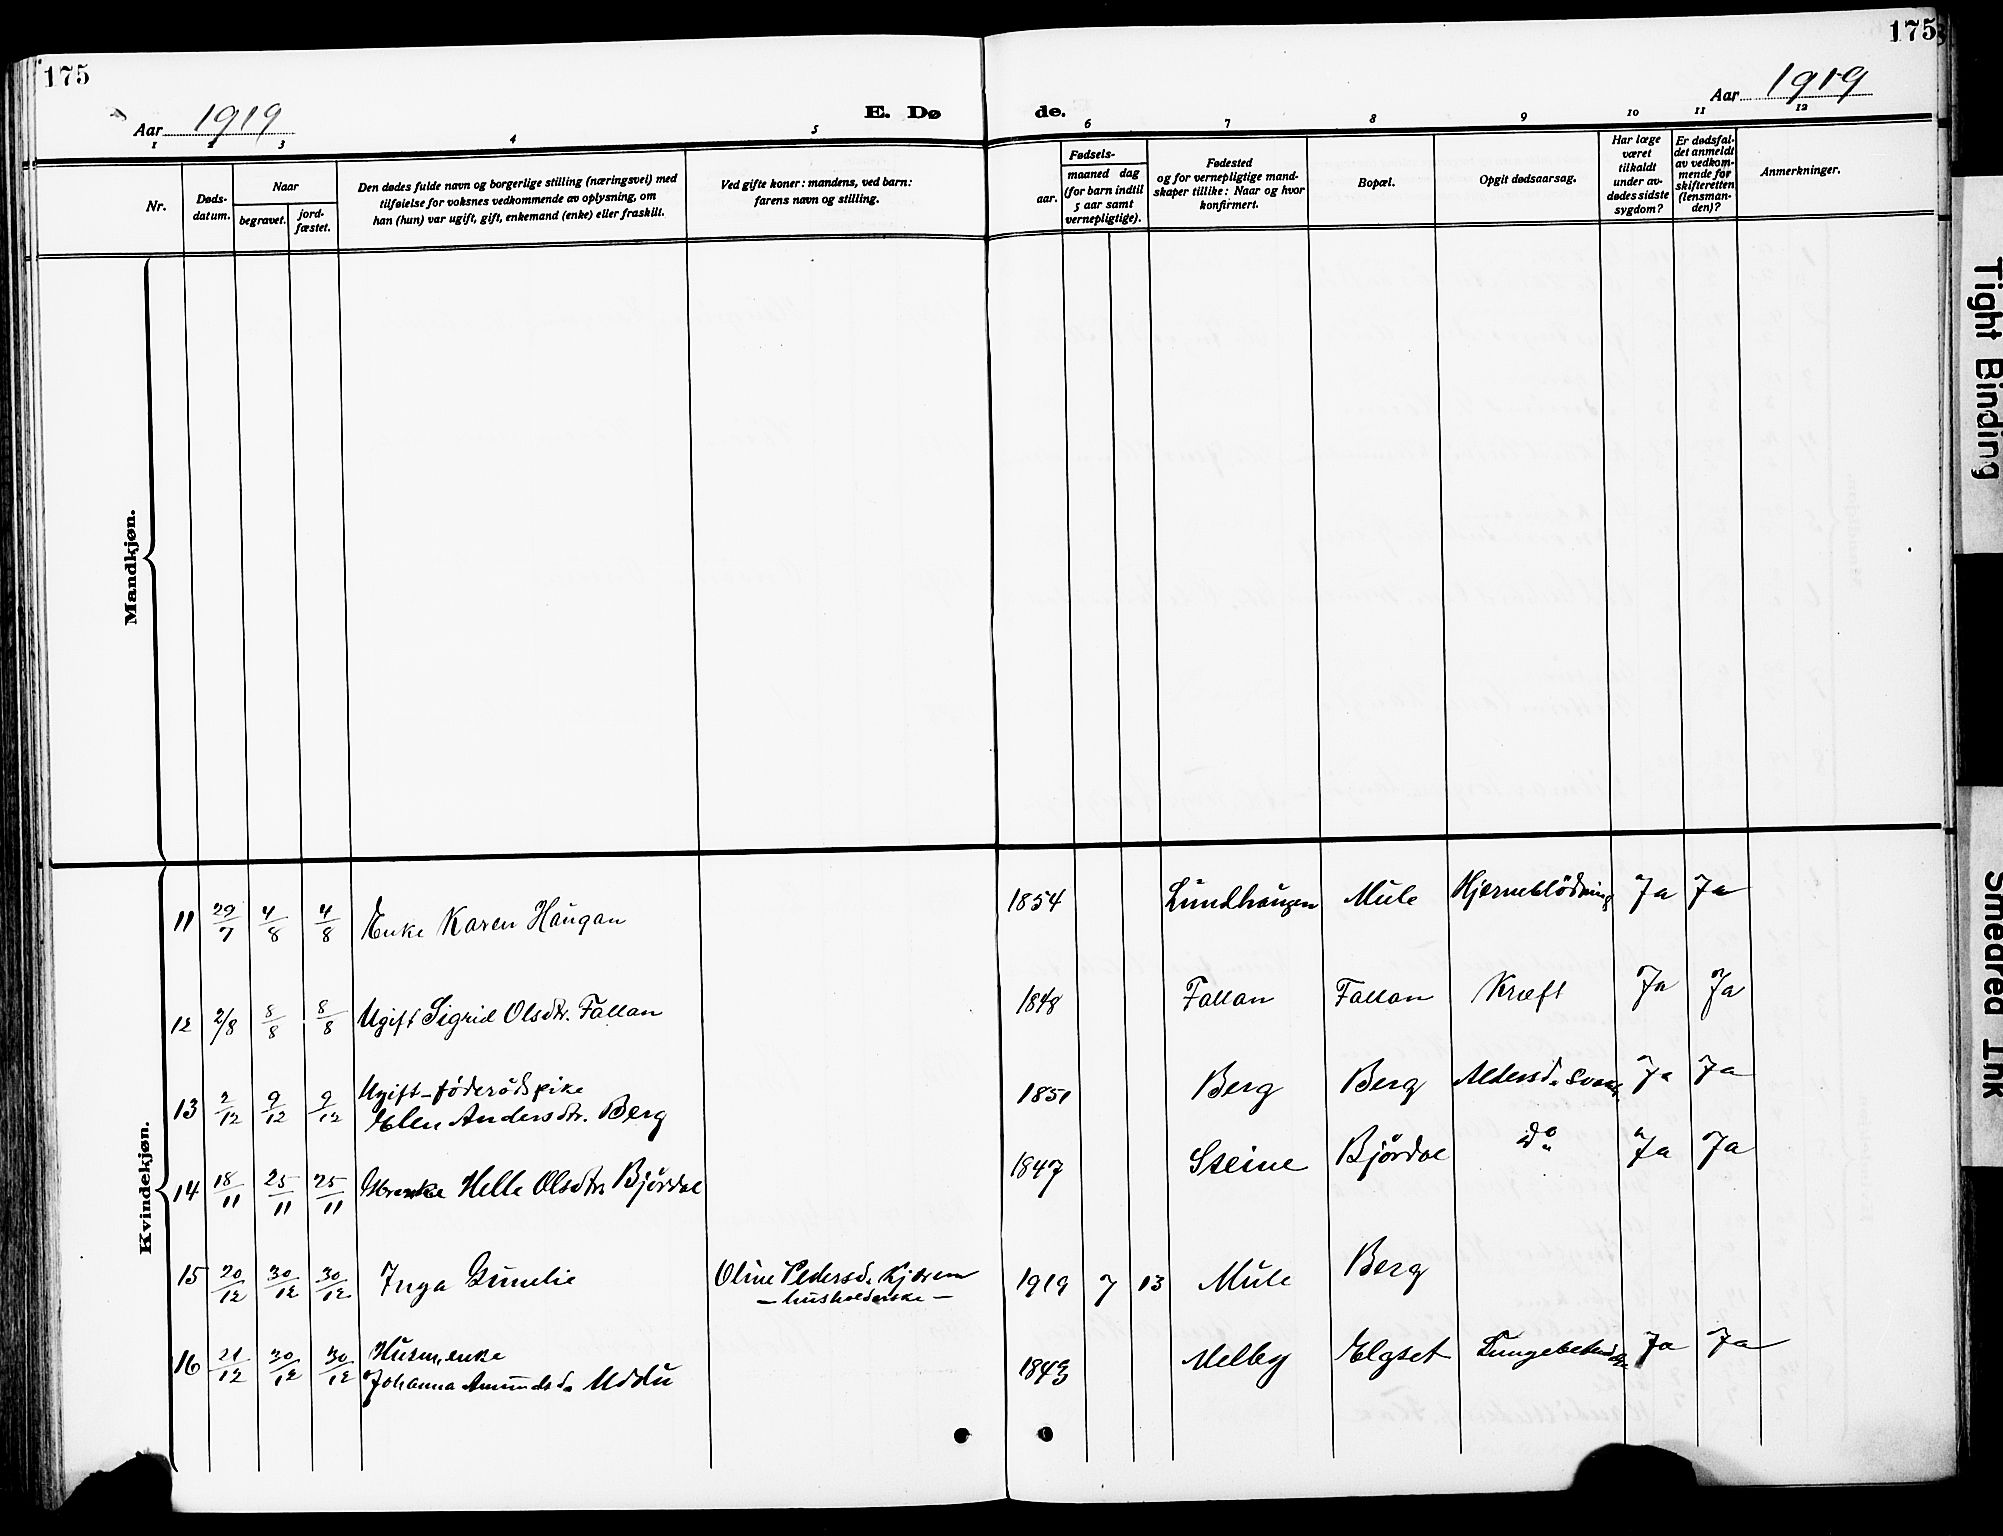 175
175
Aar 1919
E. Dø
de.
Aar 1919
1 2 3 4 5 6 7 8 9 10 11 12
Nr.
Døds-
datum.
Naar
begravet.
jord-
fæstet.
Den dødes fulde navn og borgerlige stilling (næringsvei) med
tilføielse for voksnes vedkommende av oplysning, om
han (hun) var ugift, gift, enkemand (enke) eller fraskilt.
Ved gifte koner: mandens, ved barn:
farens navn og stilling.
Fødsels-
aar.
maaned dag
(for barn indtil
5 aar samt
vernepligtige).
Fødested
og for vernepligtige mand-
skaper tillike: Naar og hvor
konfirmert.
Bopæl.
Opgit dødsaarsag.
Har læge
været
tilkaldt
under av-
dødes sidste
sygdom?
Er dødsfal-
det anmeldt
av vedkom-
mende for
skifteretten
(lensman-
den)?
Anmerkninger.
Mandkjøn.
Kvindekjøn.
11 29/7 4/8 4/8 Enke Karen Haugan 1854 Lundhaugen Mule Hjerneblödning Ja Ja
12 2/8 8/8 8/8 Ugift Sigrid Olsdtr. Fallan 1848 Fallan Fallan Kræft Ja Ja
13 2/12 9/12 9/12 Ugift föderådspike
Elen Andersdtr. Berg 1851 Berg Berg Aldersd. svak Ja Ja
14 18/11 25/11 25/11 Helle Olsdtr Björdal 1847 Steine Björdal do Ja Ja
15 20/12 30/12 30/12 Inga Gunelie Oline Pedersd. Kjæren
– husholderske –
1919 7 13 Mule Berg
16 21/12 30/12 30/12 Husm.enke
Johanna Amundsd. Uddu 1843 Melby Elgset Ja Ja
Tight Binding
Smeared Ink